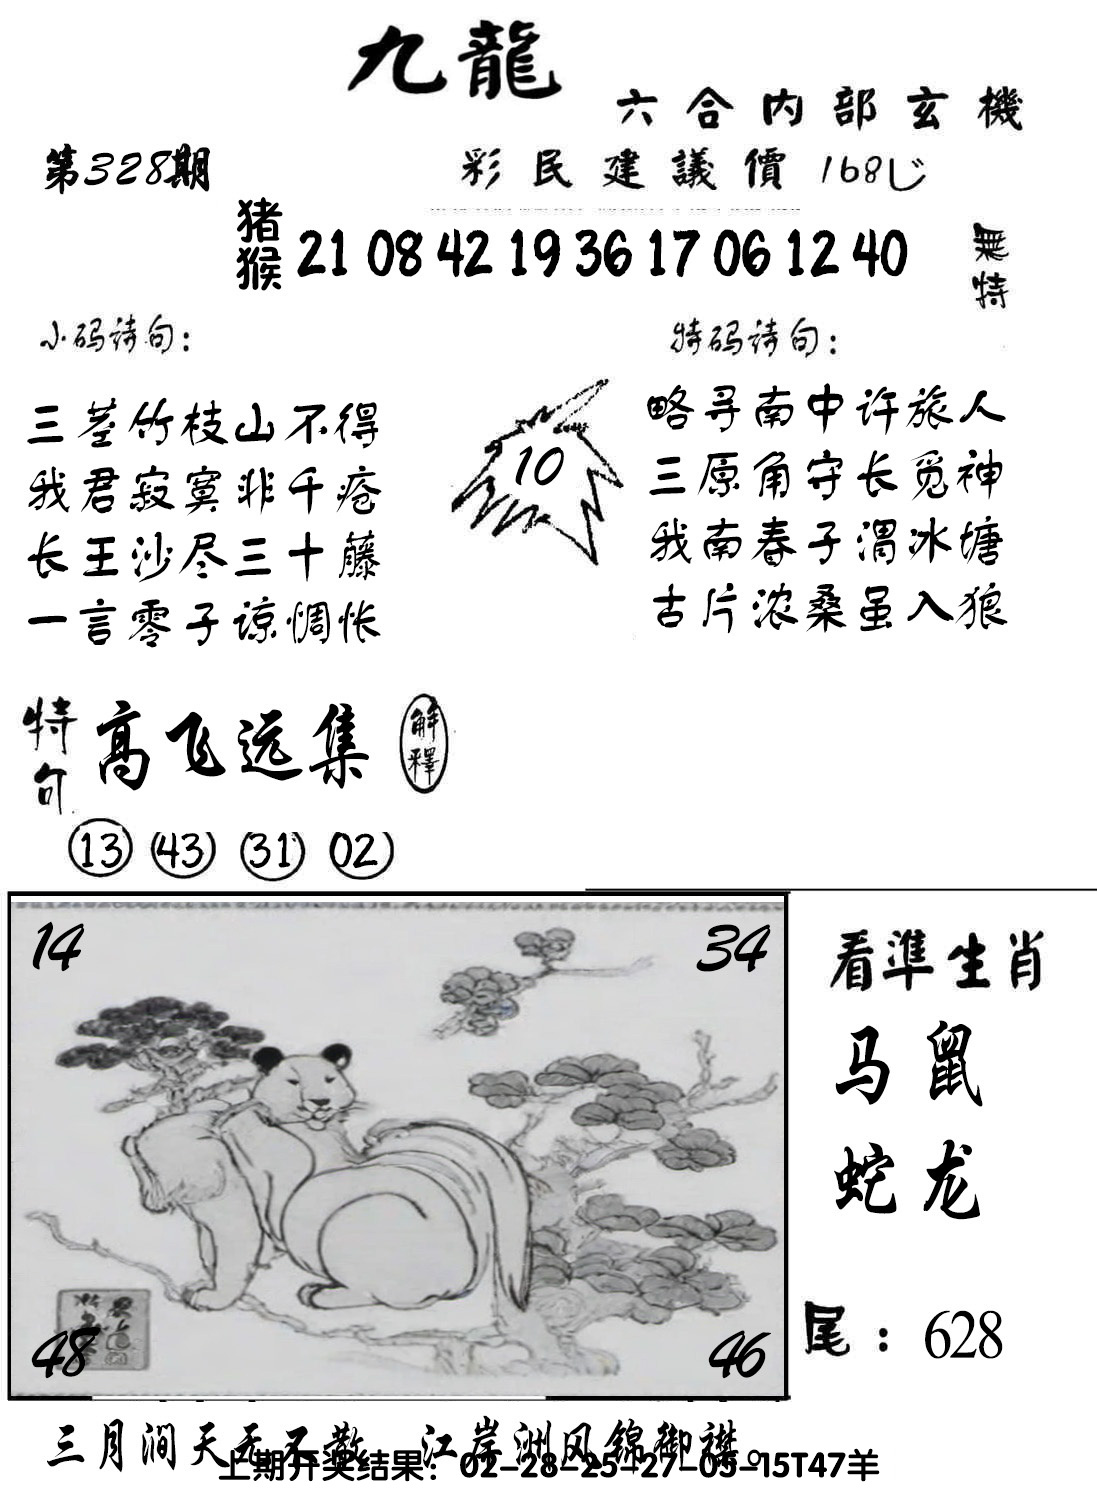 九龍
六合内部玄機
第328期
彩民建議價168
猪猴 21 08 42 19 36 17 06 12 40
無特
小码诗句：
三茎竹枝山不得
我君寂寞非千疮
长王沙尽三十藤
一言零子谅惆怅
10
特码诗句：
略寻南中许旅人
三原角守长觅神
我南春子渭冰塘
古片浓桑虽入狼
特句 高飞远集 解釋
13 43 31 02
14 34
48 46
看準生肖
马鼠
蛇龙
尾：628
三月涧天无不散 江岸洲风锦御襟。
上期开奖结果：02-28-25-27-05-15T47羊